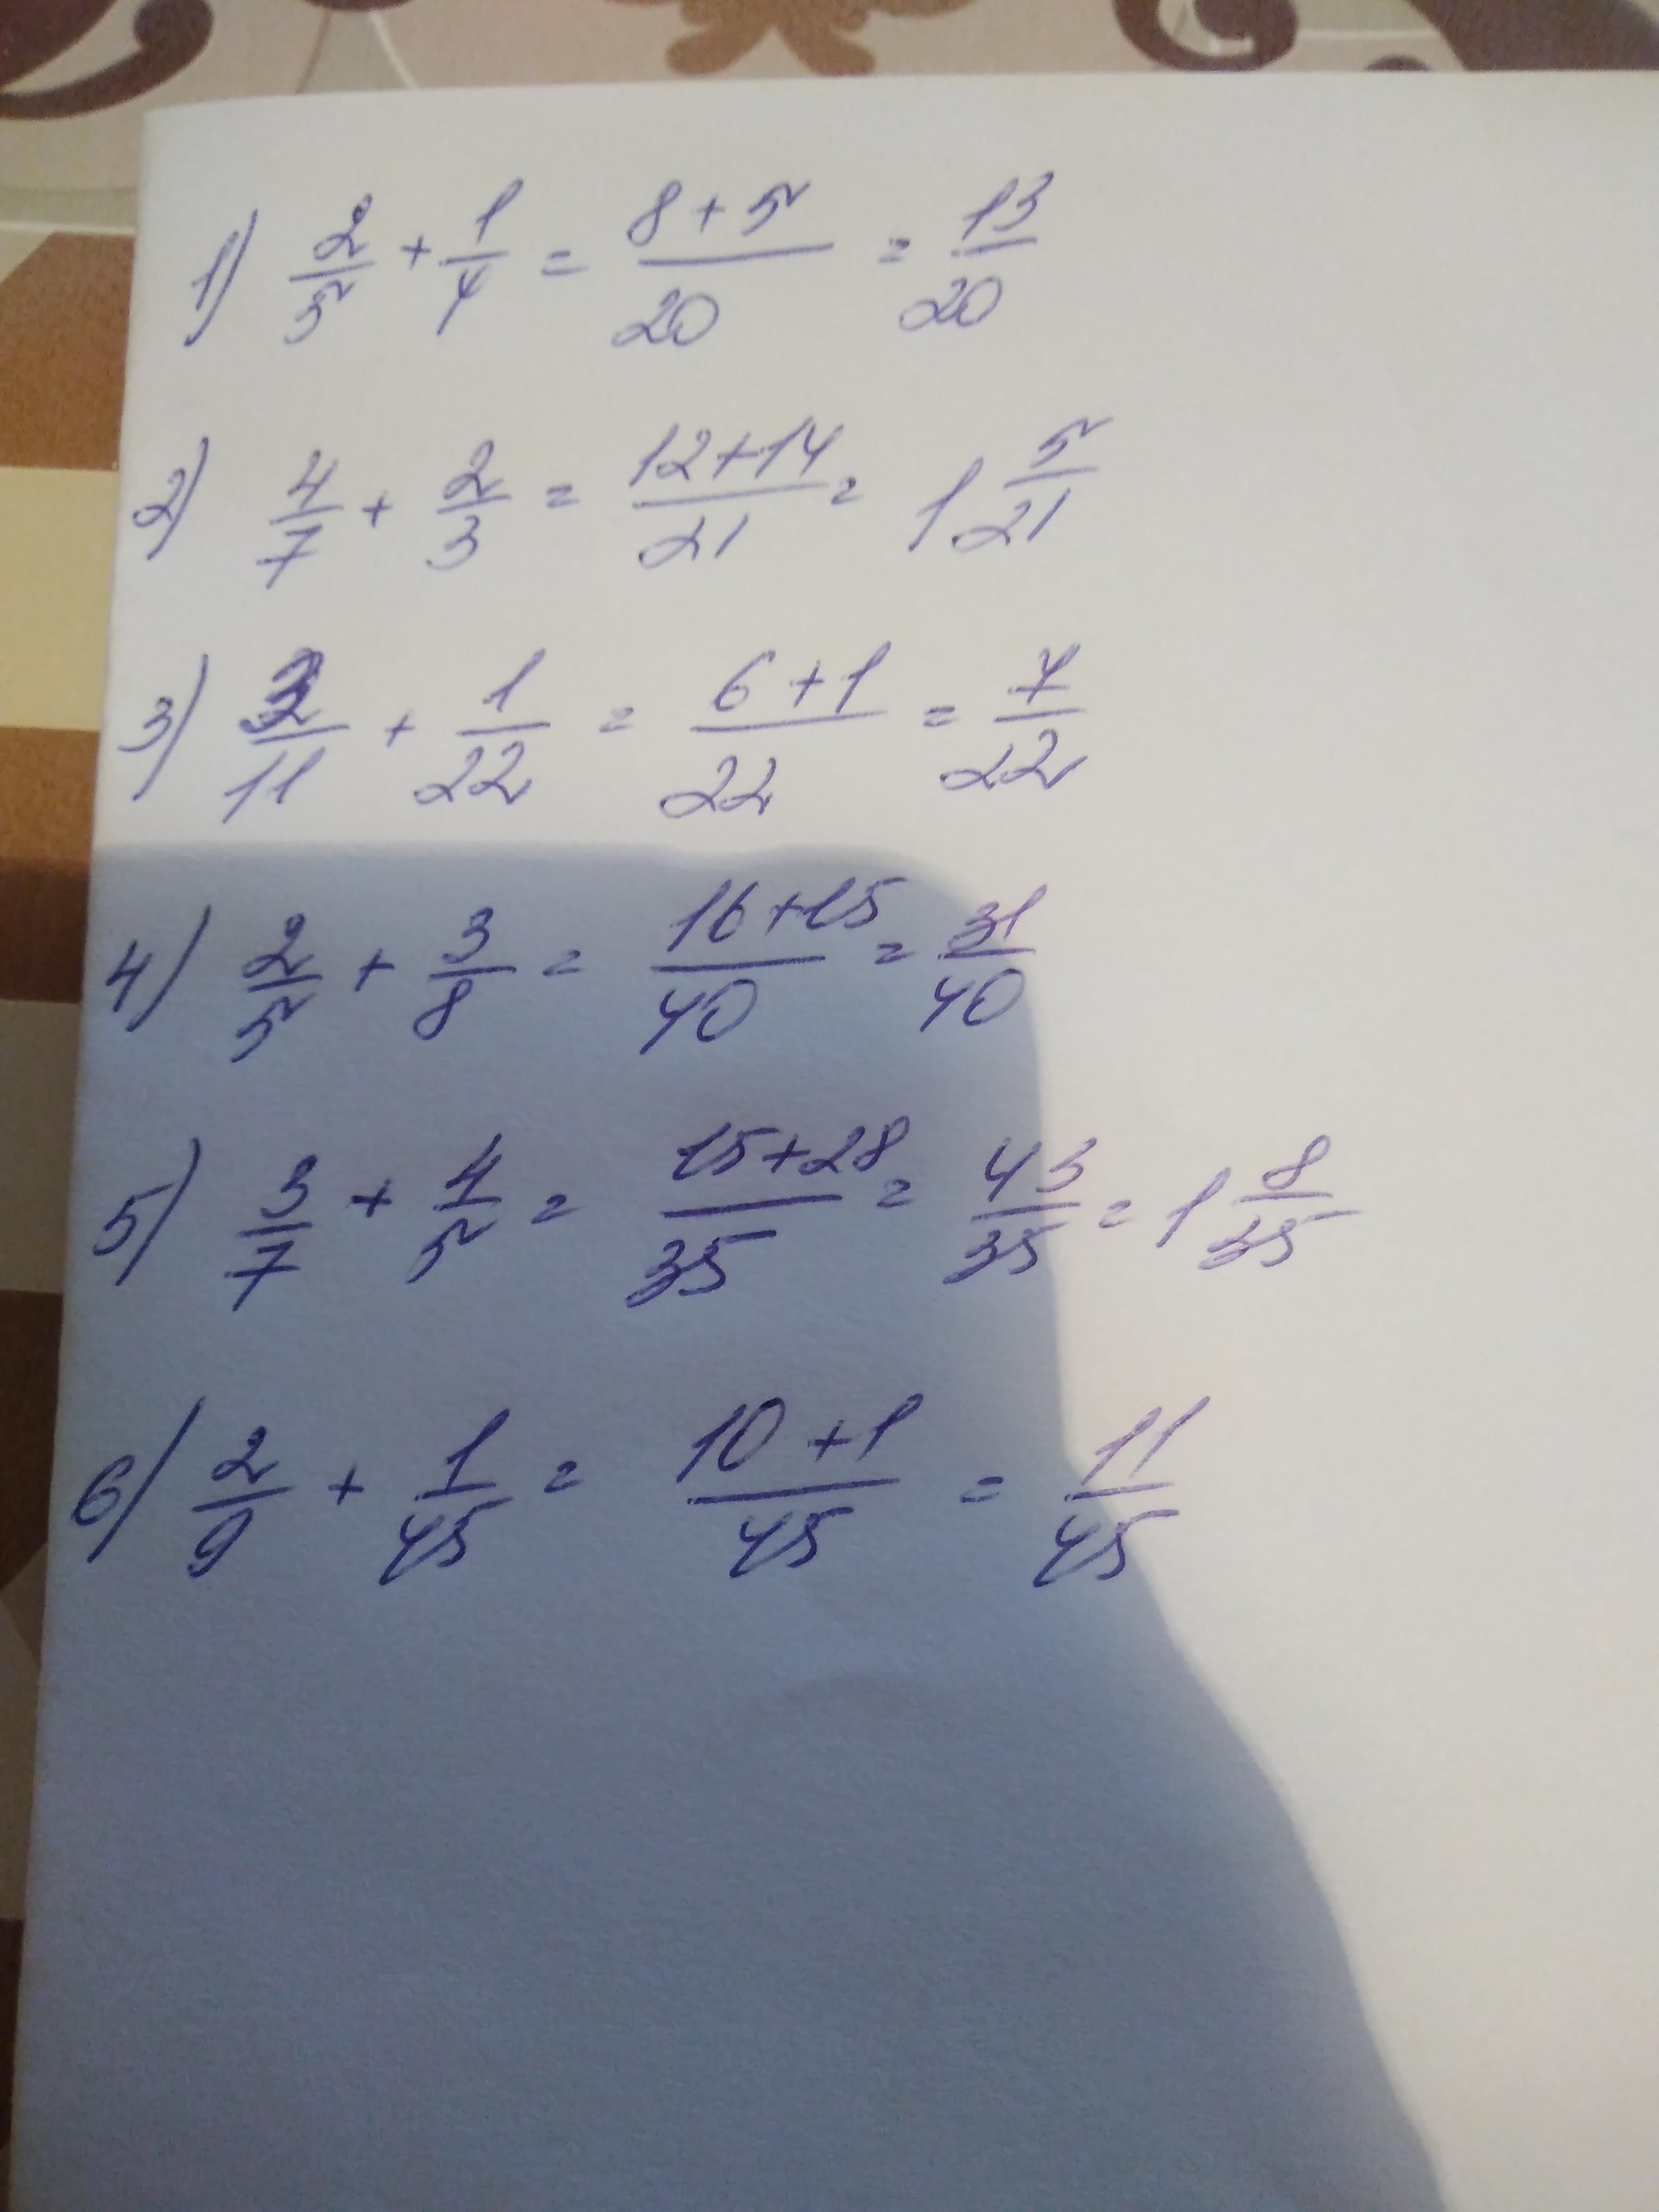 1) 2/5 + 1/4 = (8+5)/20 = 13/20
2) 4/7 + 2/3 = (12+14)/21 = 1 5/21
3) 3/11 + 1/22 = (6+1)/22 = 7/22
4) 2/5 + 3/8 = (16+15)/40 = 31/40
5) 3/7 + 4/5 = (15+28)/35 = 43/35 = 1 8/35
6) 2/9 + 1/45 = (10+1)/45 = 11/45